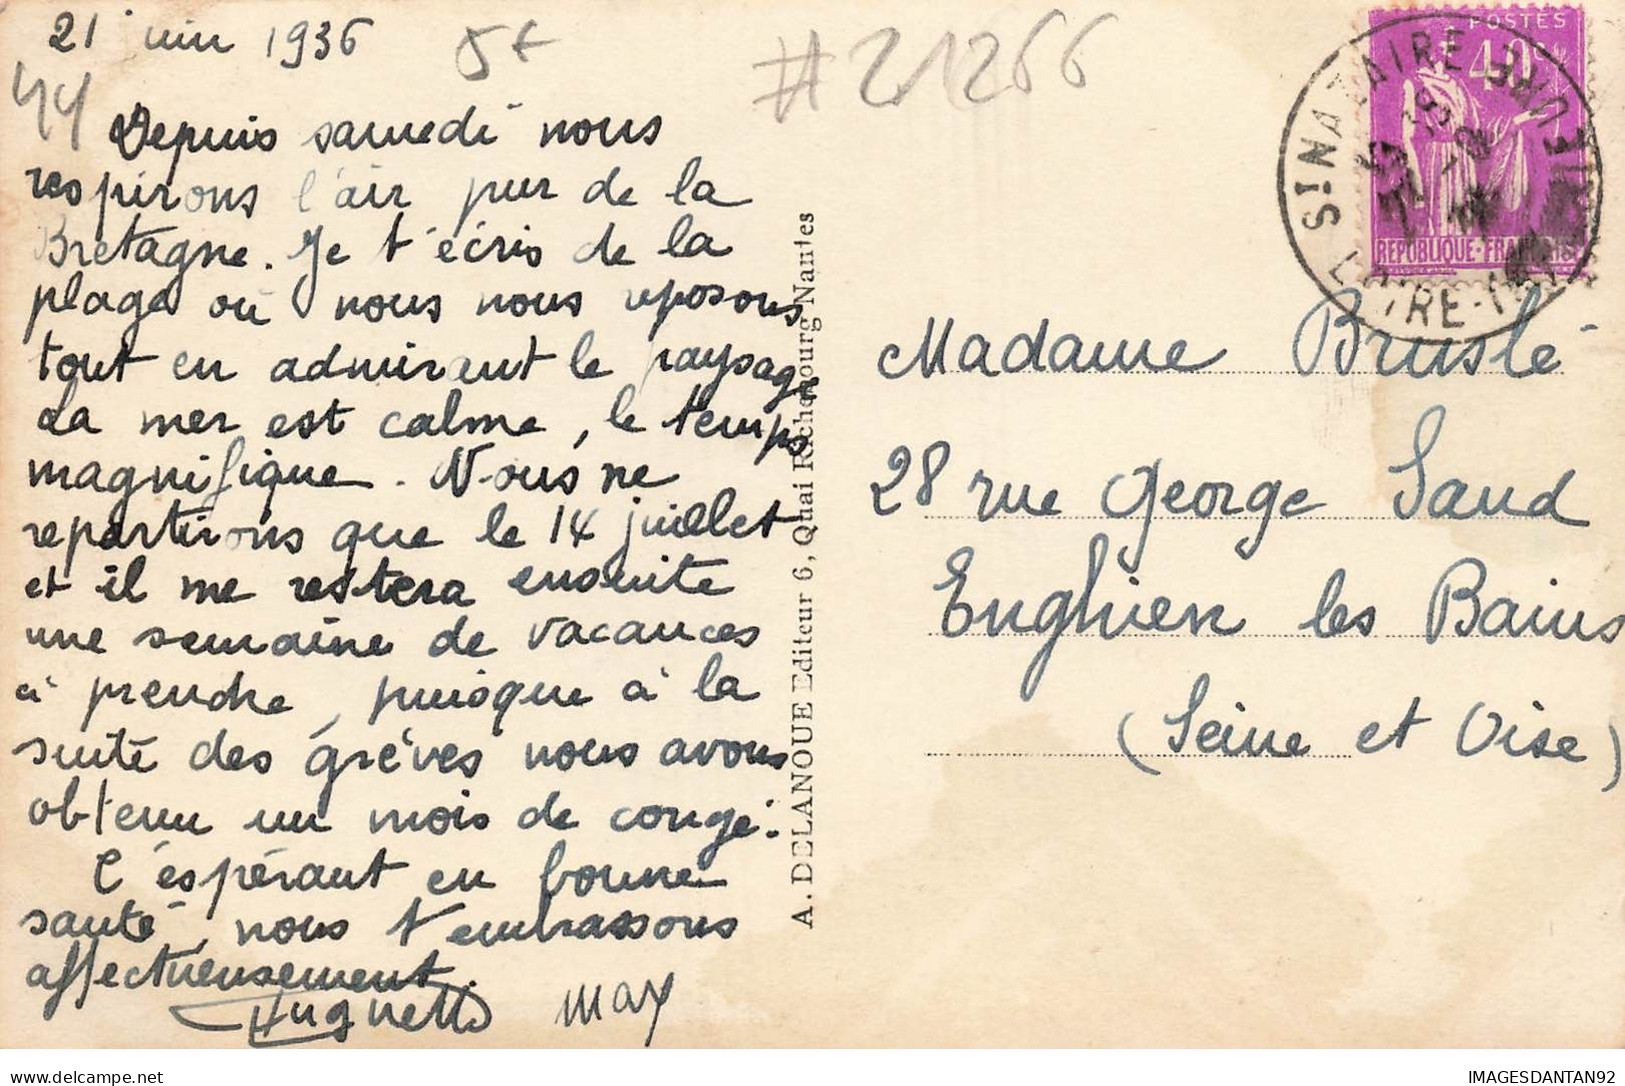 21 juin 1936
5f
#21266
44
Depuis samedi nous
respirons l'air pur de la
Bretagne. Je t'écris de la
plage où nous nous reposons
tout en admirant le paysage
La mer est calme, le temps
magnifique. Nous ne
repartirons que le 14 juillet
et il me restera ensuite
une semaine de vacances
à prendre, puisque à la
suite des grèves nous avons
obtenu un mois de congé.
T'espérant en bonne
santé, nous t'embrassons
affectueusement.
Huguette Max
A. DELANOUE Editeur 6, Quai Richebourg Nantes
POSTES
40c
REPUBLIQUE-FRANÇAISE
ST NAZAIRE
LOIRE-INFRE
Madame Bruslé
28 rue George Sand
Enghien les Bains
(Seine et Oise)
IMAGESDANTAN92
delcampe.net